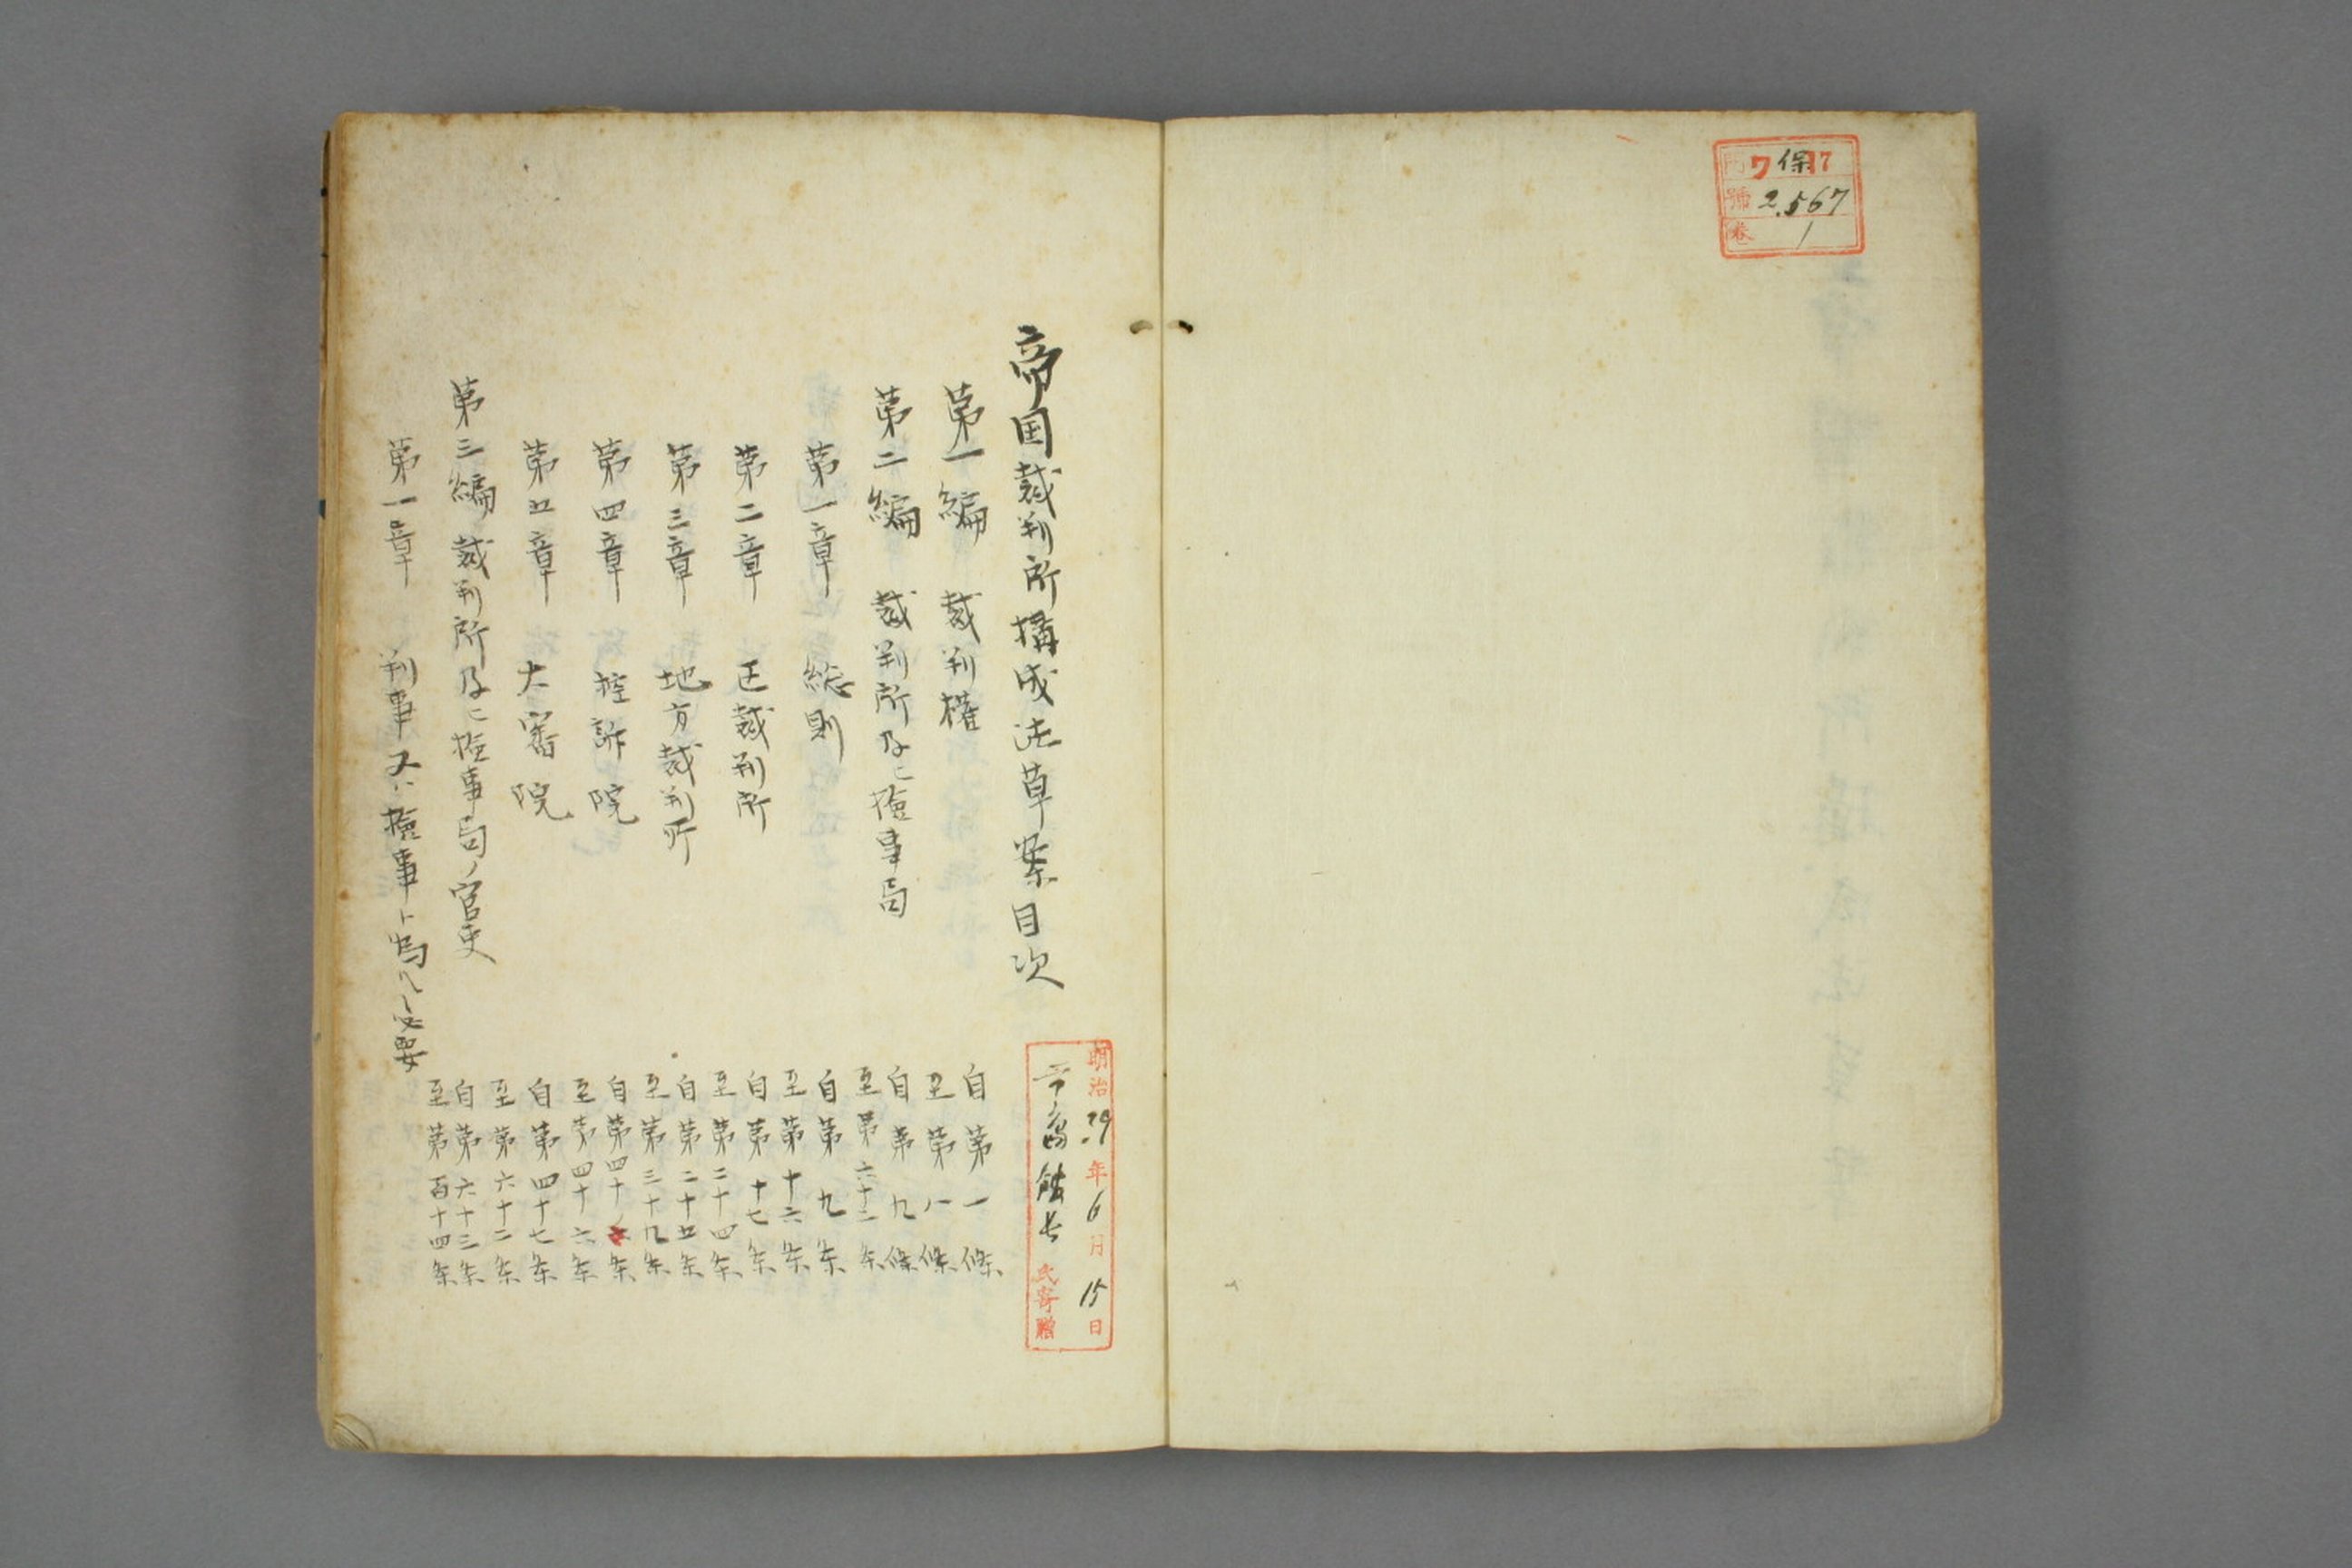 門 ワ 保 17
號 2.567
卷 1
帝国裁判所構成法草案目次
明治29年6月15日
氏寄贈
第一編 裁判權
自第一條
至第八條
第二編 裁判所及ヒ檢事局
自第九條
至第六十二条
第一章 総則
自第九条
至第十六条
第二章 区裁判所
自第十七条
至第二十四条
第三章 地方裁判所
自第二十五条
至第三十九条
第四章 控訴院
自第四十条
至第四十六条
第五章 大審院
自第四十七条
至第六十二条
第三編 裁判所及ヒ檢事局ノ官吏
自第六十三条
至第百十四条
第一章 判事又ハ檢事ト為ルニ必要